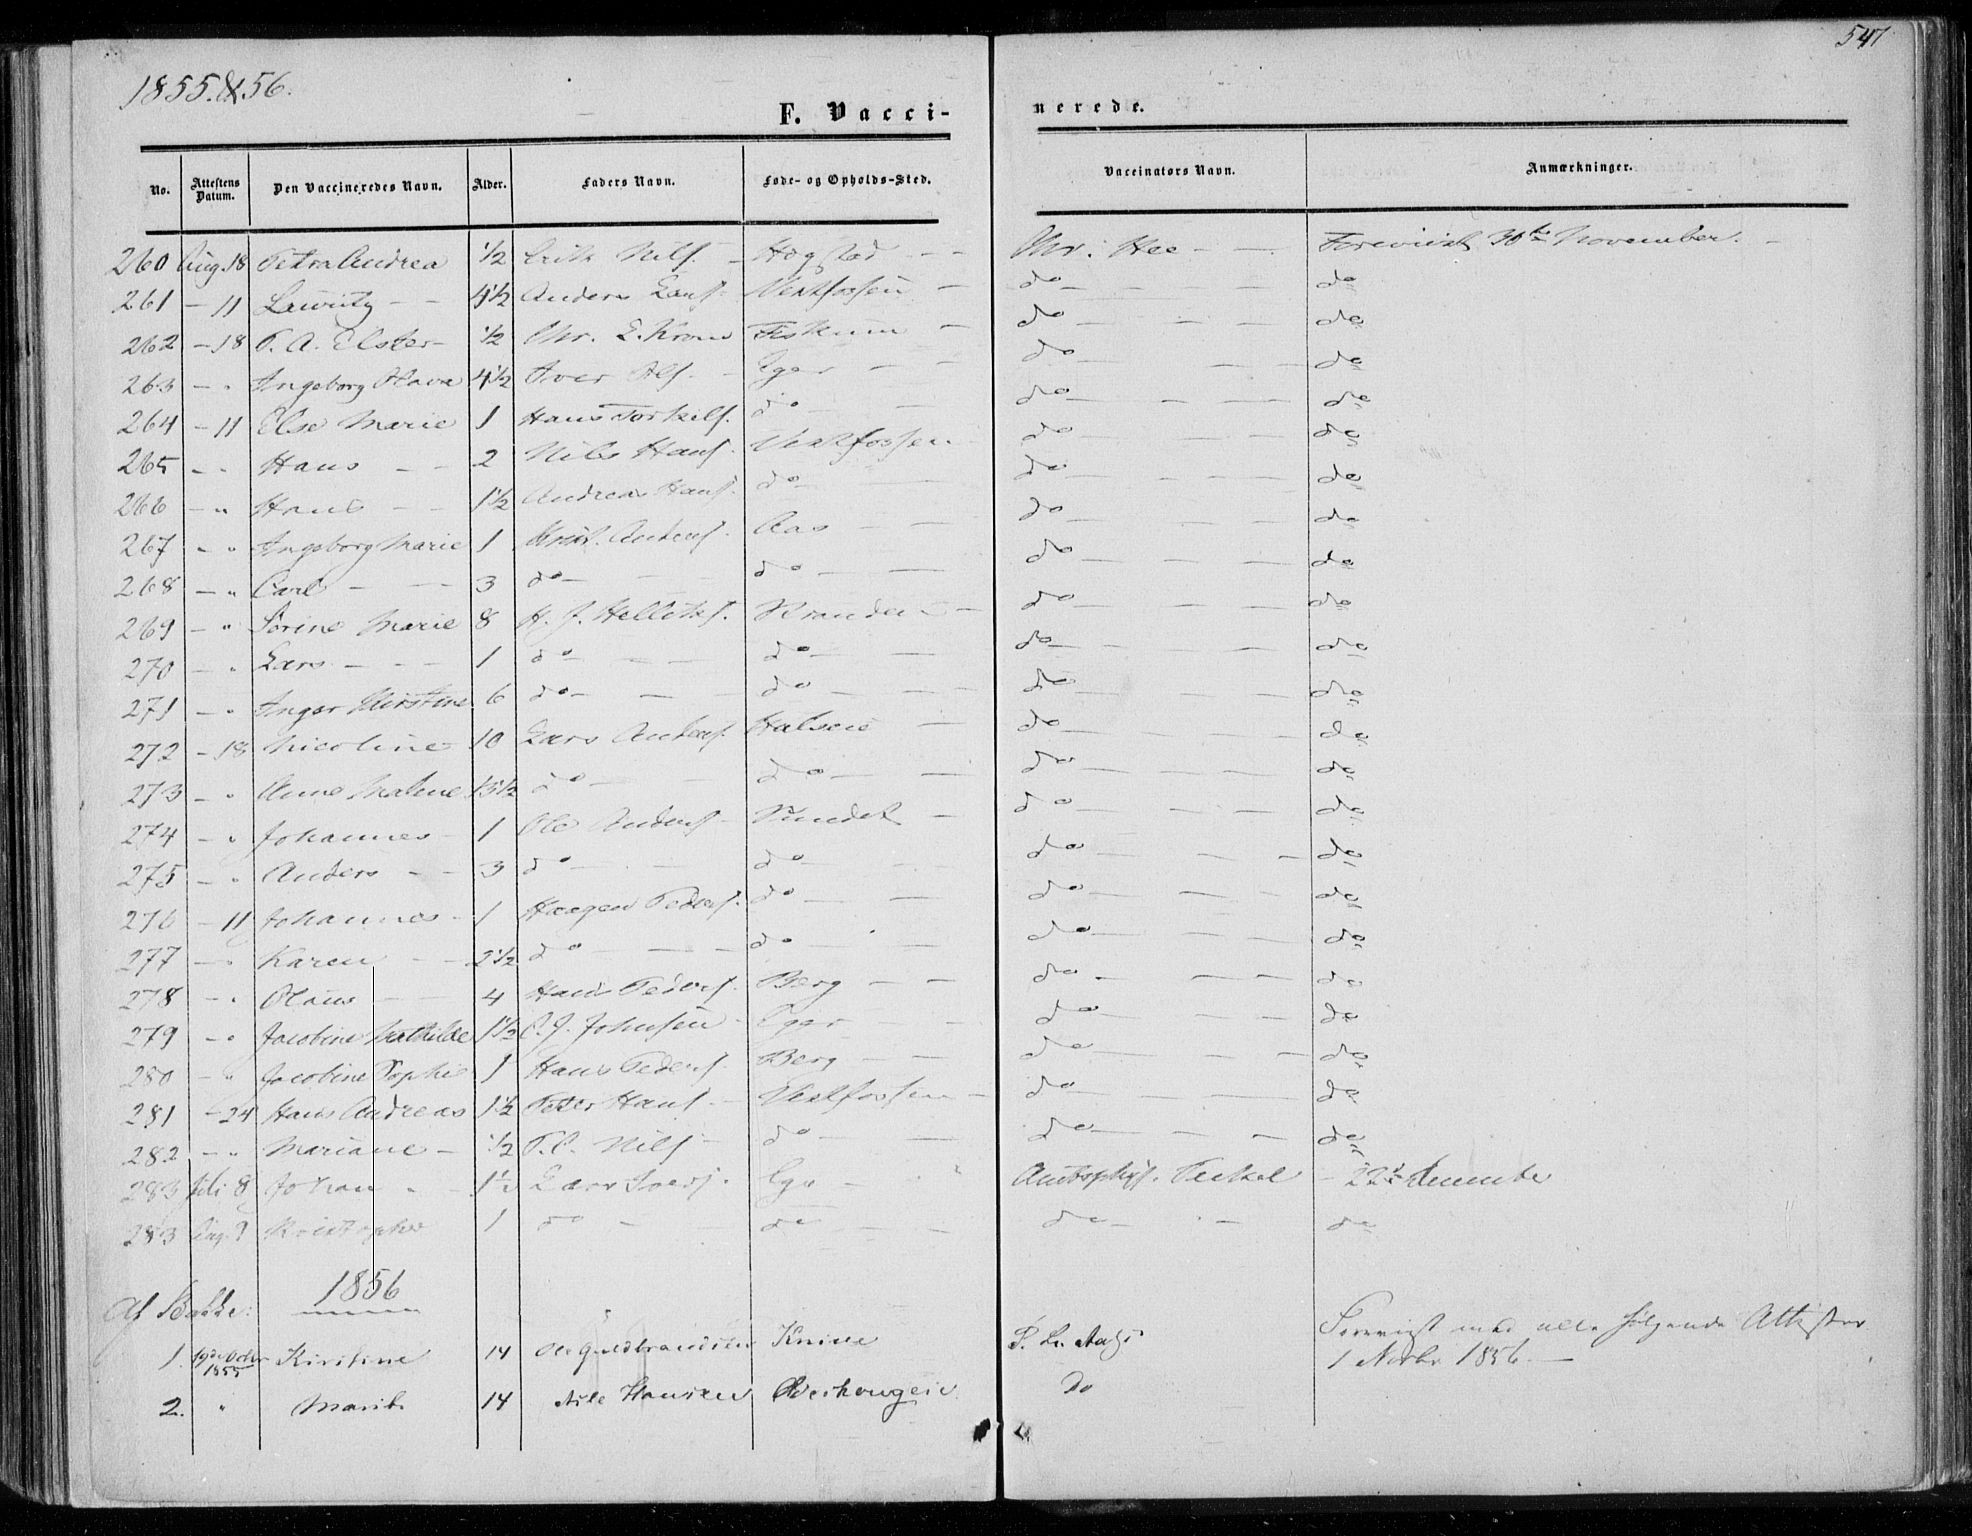 547
1855.&56.
F. Vacci-nerede.
No. Attestens Datum. Den Vaccineredes Navn. Alder. Faders Navn. Føde- og Opholds-Sted. Vaccinators Navn. Anmærkninger.
260 Aug. 18 Petra Andrea 1/2 Erik Nils. Hogstad Chr. Hee Foreviist 30te November.
261 - 11 Lauritz 4 1/2 Anders Lars. Vestfossen do do
262 - 18 P. A. Elster 1/2 Chr. E. Krom Fiskum do do
263 - " Ingeborg Olava 4 1/2 Iver Ols. Eger do do
264 - 11 Else Marie 1 Hans Torkils. do do do
265 - " Hans 2 Nils Hans. Vestfossen do do
266 - " Hans 1 1/2 Andreas Hans. do do do
267 - " Ingeborg Marie 1 Krist. Anders. Aas do do
268 - " Carl 3 do do do do
269 - " Sorine Marie 8 H. J. Helliks. do do
270 - " Lars 1 do do do do
271 - " Inger Kirstine 6 do do do do
272 - 18 Nicoline 10 Lars Anders. Halsen do do
273 - " Anne Malene do do do do
274 - " Johannes 1 Ole Anders. Sundet do do
275 - " Anders 3 do do do do
276 - 11 Johannes 1 Haagen Peders. do do do
277 - " Karen 2 1/2 do do do do
278 - " Olaus 4 Hans Peders. Berg do do
279 - " Jacobine Mathilde 1 1/2 C. J. Johnsen Eger do do
280 - " Jacobine Sophie 1 Hans Peders. Berg do do
281 - 24 Hans Andreas 1 1/2 Peter Hans. Vestfossen do do
282 - " Mariane 1/2 P. C. Nils. do do do
283 Juli 8 Johan 1 1/2 Lars Eger Amtsphys. - 22de December
283 Aug. 9 Kristopher 1 do do do do
1856
Af Bakke:
1. 19de Octbr 1855 Kirstine 14 Ole Guldbrandsen Knive Forevist med alle følgende Attester
1 Novbr 1856.
2. " Marie 14 Nils Hansen do